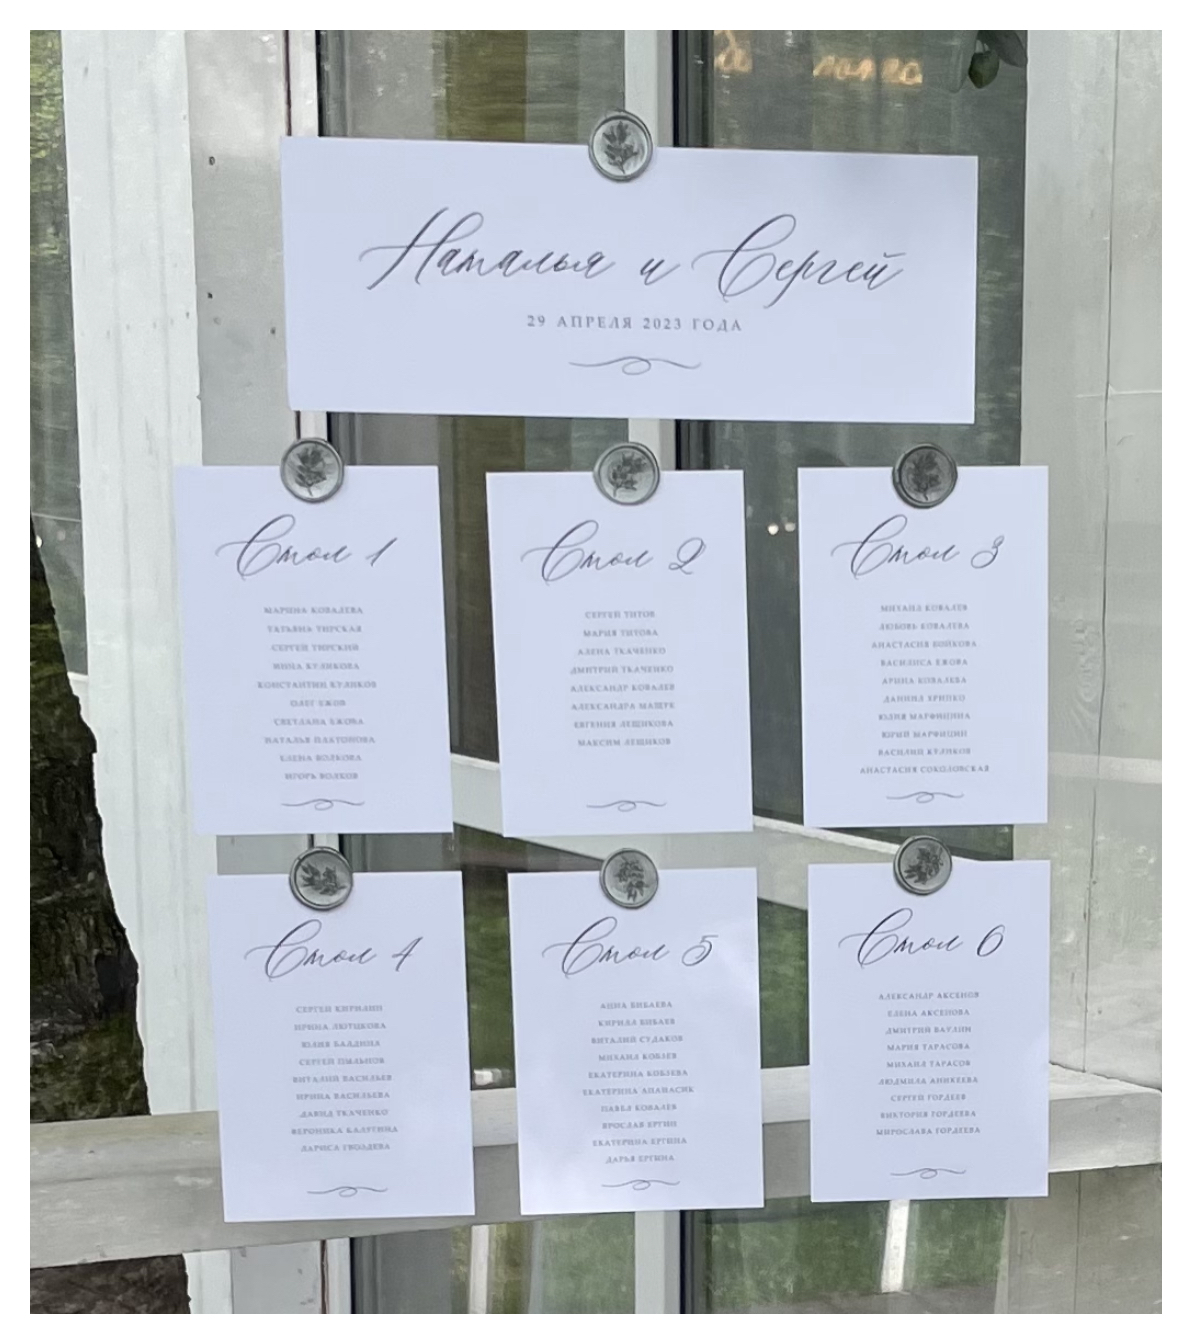 Наталья и Сергей
29 АПРЕЛЯ 2023 ГОДА
Стол 1
МАРИНА КОВАЛЕВА
ТАТЬЯНА ТИРСКАЯ
СЕРГЕЙ ТИРСКИЙ
ИННА КУЛИКОВА
КОНСТАНТИН КУЛИКОВ
ОЛЕГ ЕЖОВ
СВЕТЛАНА ЕЖОВА
НАТАЛЬЯ ПЛАТОНОВА
ЕЛЕНА ВОЛКОВА
ИГОРЬ ВОЛКОВ
Стол 2
СЕРГЕЙ ТИТОВ
МАРИЯ ТИТОВА
АЛЕНА ТКАЧЕНКО
ДМИТРИЙ ТКАЧЕНКО
АЛЕКСАНДР КОВАЛЕВ
АЛЕКСАНДРА МАЩУК
ЕВГЕНИЯ ЛЕЩИКОВА
МАКСИМ ЛЕЩИКОВ
Стол 3
МИХАИЛ КОВАЛЕВ
ЛЮБОВЬ КОВАЛЕВА
АНАСТАСИЯ ВОЙКОВА
ВАСИЛИСА ЕЖОВА
АРИНА КОВАЛЕВА
ДАНИИЛ
ЮЛИЯ МАРФИЦИНА
ЮРИЙ МАРФИЦИН
ВАСИЛИЙ КУЛИКОВ
АНАСТАСИЯ СОКОЛОВСКАЯ
Стол 4
СЕРГЕЙ КИРИЛИН
ИРИНА ЛЮТИКОВА
ЮЛИЯ БАЛДИНА
СЕРГЕЙ ПЫЛЬНОВ
ВИТАЛИЙ ВАСИЛЬЕВ
ИРИНА ВАСИЛЬЕВА
ДАВИД ТКАЧЕНКО
ВЕРОНИКА КАЛУГИНА
ЛАРИСА ГВОЗДЕВА
Стол 5
АННА БИБАЕВА
КИРИЛЛ БИБАЕВ
ВИТАЛИЙ СУДАКОВ
МИХАИЛ КОБЗЕВ
ЕКАТЕРИНА КОБЗЕВА
ЕКАТЕРИНА АПАНАСИК
ПАВЕЛ КОВАЛЕВ
ЯРОСЛАВ ЕРГИН
ЕКАТЕРИНА ЕРГИНА
ДАРЬЯ ЕРГИНА
Стол 6
АЛЕКСАНДР АКСЕНОВ
ЕЛЕНА АКСЕНОВА
ДМИТРИЙ ВАУЛИН
МАРИЯ ТАРАСОВА
МИХАИЛ ТАРАСОВ
ЛЮДМИЛА АНИКЕЕВА
СЕРГЕЙ ГОРДЕЕВ
ВИКТОРИЯ ГОРДЕЕВА
МИРОСЛАВА ГОРДЕЕВА